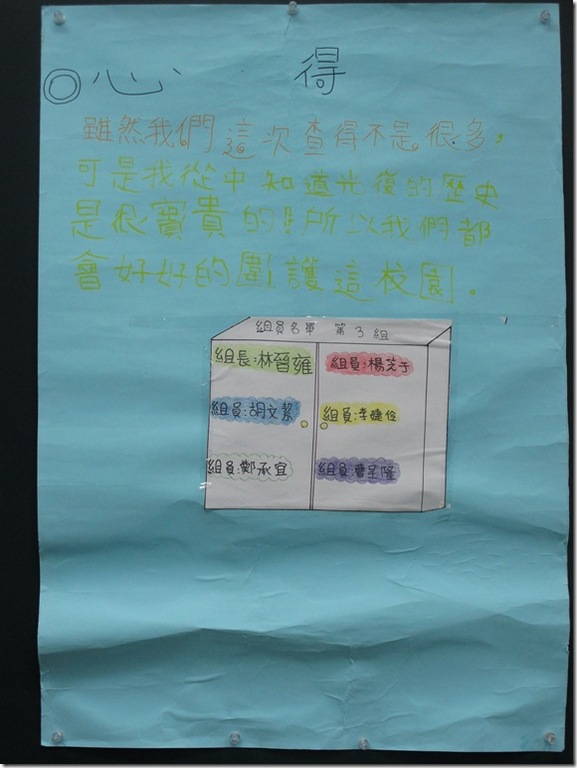 ◎心得
雖然我們這次查得不是很多，
可是我從中知道光復的歷史
是很寶貴的!!!所以我們都
會好好的圍護這校園。
組員名單 第3組
組長:林晉雍
組員:楊芝于
組員:胡文絜
組員:李婕伶
組員:鄭承宜
組員:曹呈隆